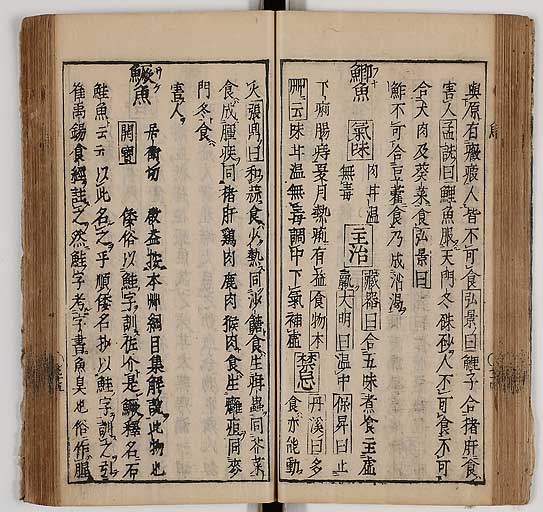 與原有癥瘕人皆不可食弘景曰鯉子合猪肝食
害人孟詵曰鯉魚服天門冬硃砂人不可食不可
合犬肉及葵菜食弘景曰
鮓不可合豆藿食乃成消渇
鯽魚 氣味 肉甘温無毒 主治 藏器曰合五味煮食主虚羸大明曰温中保昇曰止
下痢腸痔夏月熱痢有益食物本
艸云味甘温無毒調中下氣補虚 禁忌 丹溪曰多食亦能動
火張鼎曰和蒜食少熱同沙餹食生疳蟲同芥菜
食成腫疾同猪肝鷄肉鹿肉猴肉食生癰疽同麥
門冬食
害人
鱖魚 居衛切 敬益按本艸綱目集解説此物也
開寶 倭俗以鮭字訓 是鱖釋名石
鮭魚云云以此名之乎順倭名抄以鮭字訓之引
崔禹錫食經註之然鮭字考字書魚臭也俗作腥